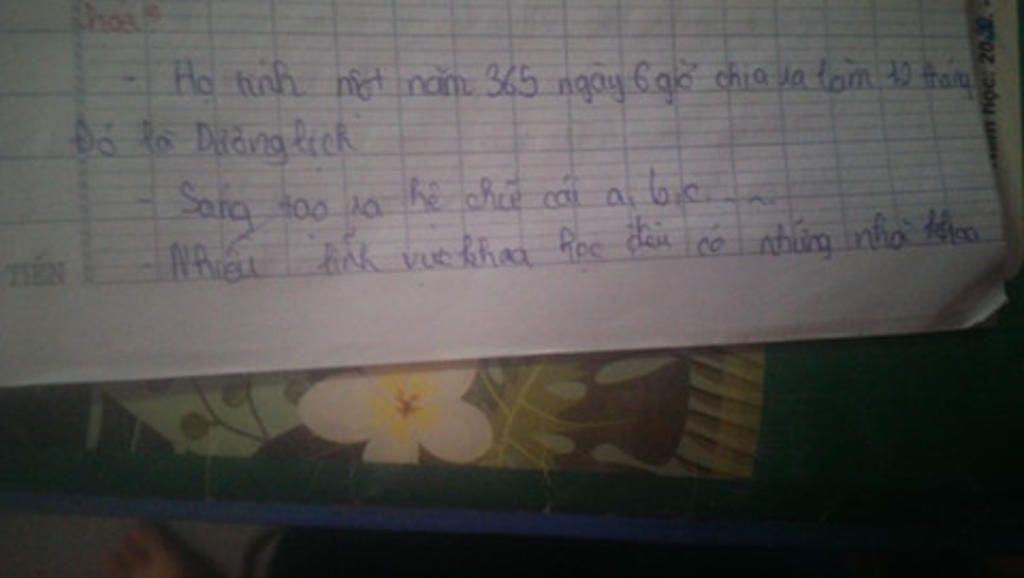 hoá
- Họ tính một năm 365 ngày 6 giờ chia ra làm 12 tháng
Đó là Dương lịch
- Sáng tạo ra hệ chữ cái a, b, c....
- Nhiều lĩnh vực khoa học đều có những nhà khoa
TIẾN
học: 20